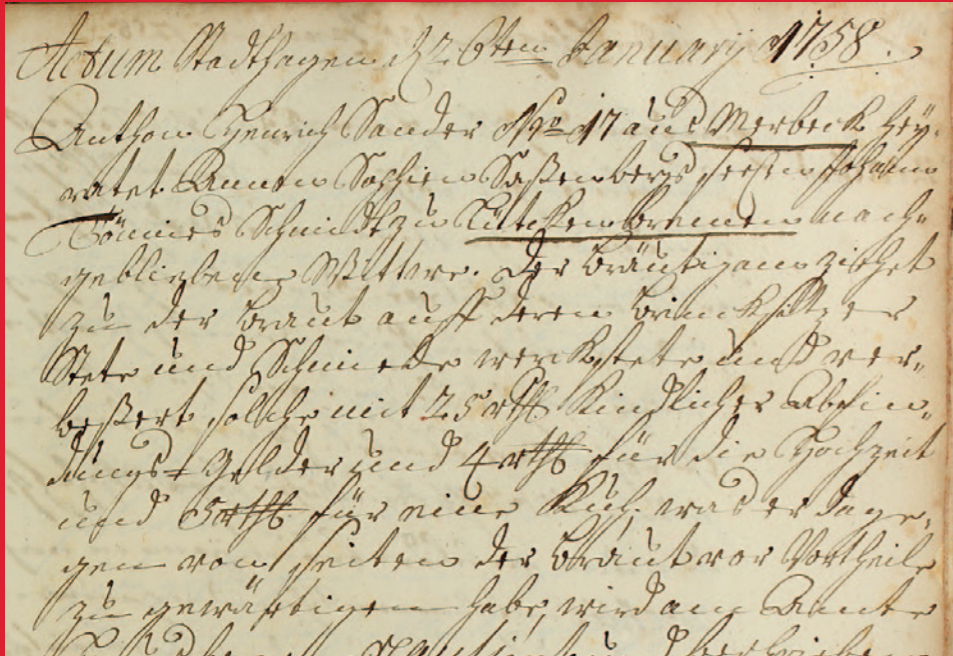 Actum Stadthagen d 26ten January 1758.
Anthon Henrich Sander No 17 aus Merbeck hey-
ratet Annen Sophien Saßenbergs seel. Johann
Tönnies Schmidt zu Lütcken Bremen nach-
gebliebene Wittwe. Der Bräutigam ziehet
zu der Braut auff deren Brincksitzer
Stete und Schmiede werckstete und ver-
beßert solche mit 25 rthl Kindlicher Abfin-
dungs-Gelder und 4 rthl für die Hochzeit
und 5 rthl für eine Kuh, was er dage-
gen von seiten der Braut vor Vortheile
zu gewärtigen habe, wird am Amte